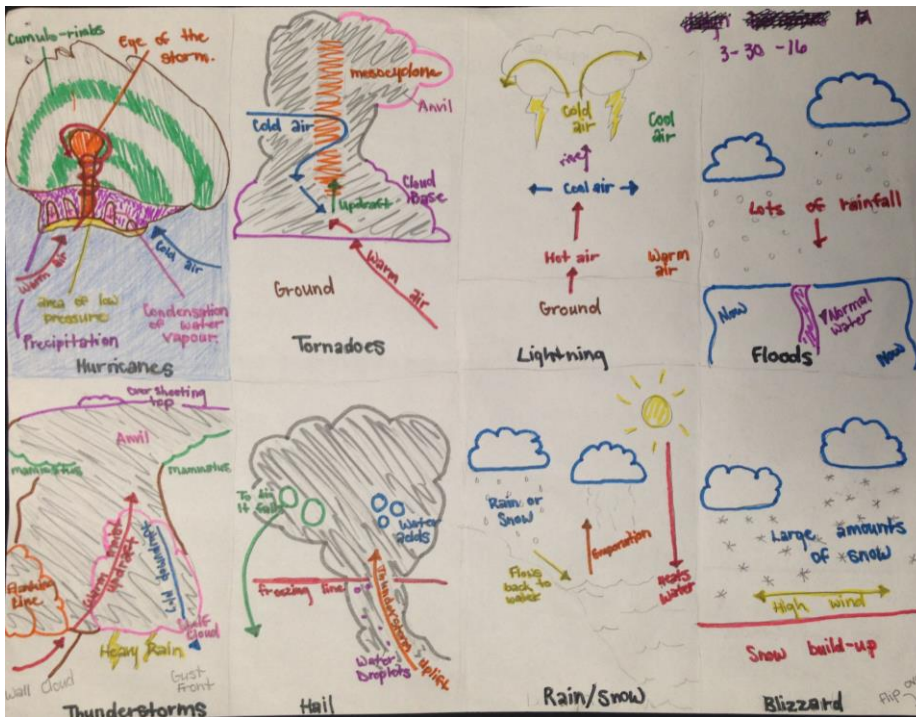 3-30-16
Eye of the
storm.
Warm air
Cold air
area of low
pressure
Precipitation
Condensation
of water
vapour
Hurricanes
mesocyclone
Anvil
Cold air
Cloud
Base
updraft
Warm air
Ground
Tornadoes
Cold
air
Cool
air
rise
Cool air
Hot air
Warm
air
Ground
Lightning
Lots of rainfall
Now
Normal
water
Now
Floods
Over shooting
top
Anvil
mammatus
Flanking
Line
Warm moist
updraft
Cold downdraft
Shelf
Cloud
Heavy Rain
Wall Cloud
Gust
Front
Thunderstorms
It falls
Water
adds
freezing line
Thunderstorm
Uplift
Water
Droplets
Hail
Rain or
Snow
Flows
back to
water
Evaporation
Heats
Water
Rain/Snow
Large amounts
of snow
High wind
Snow build-up
Blizzard